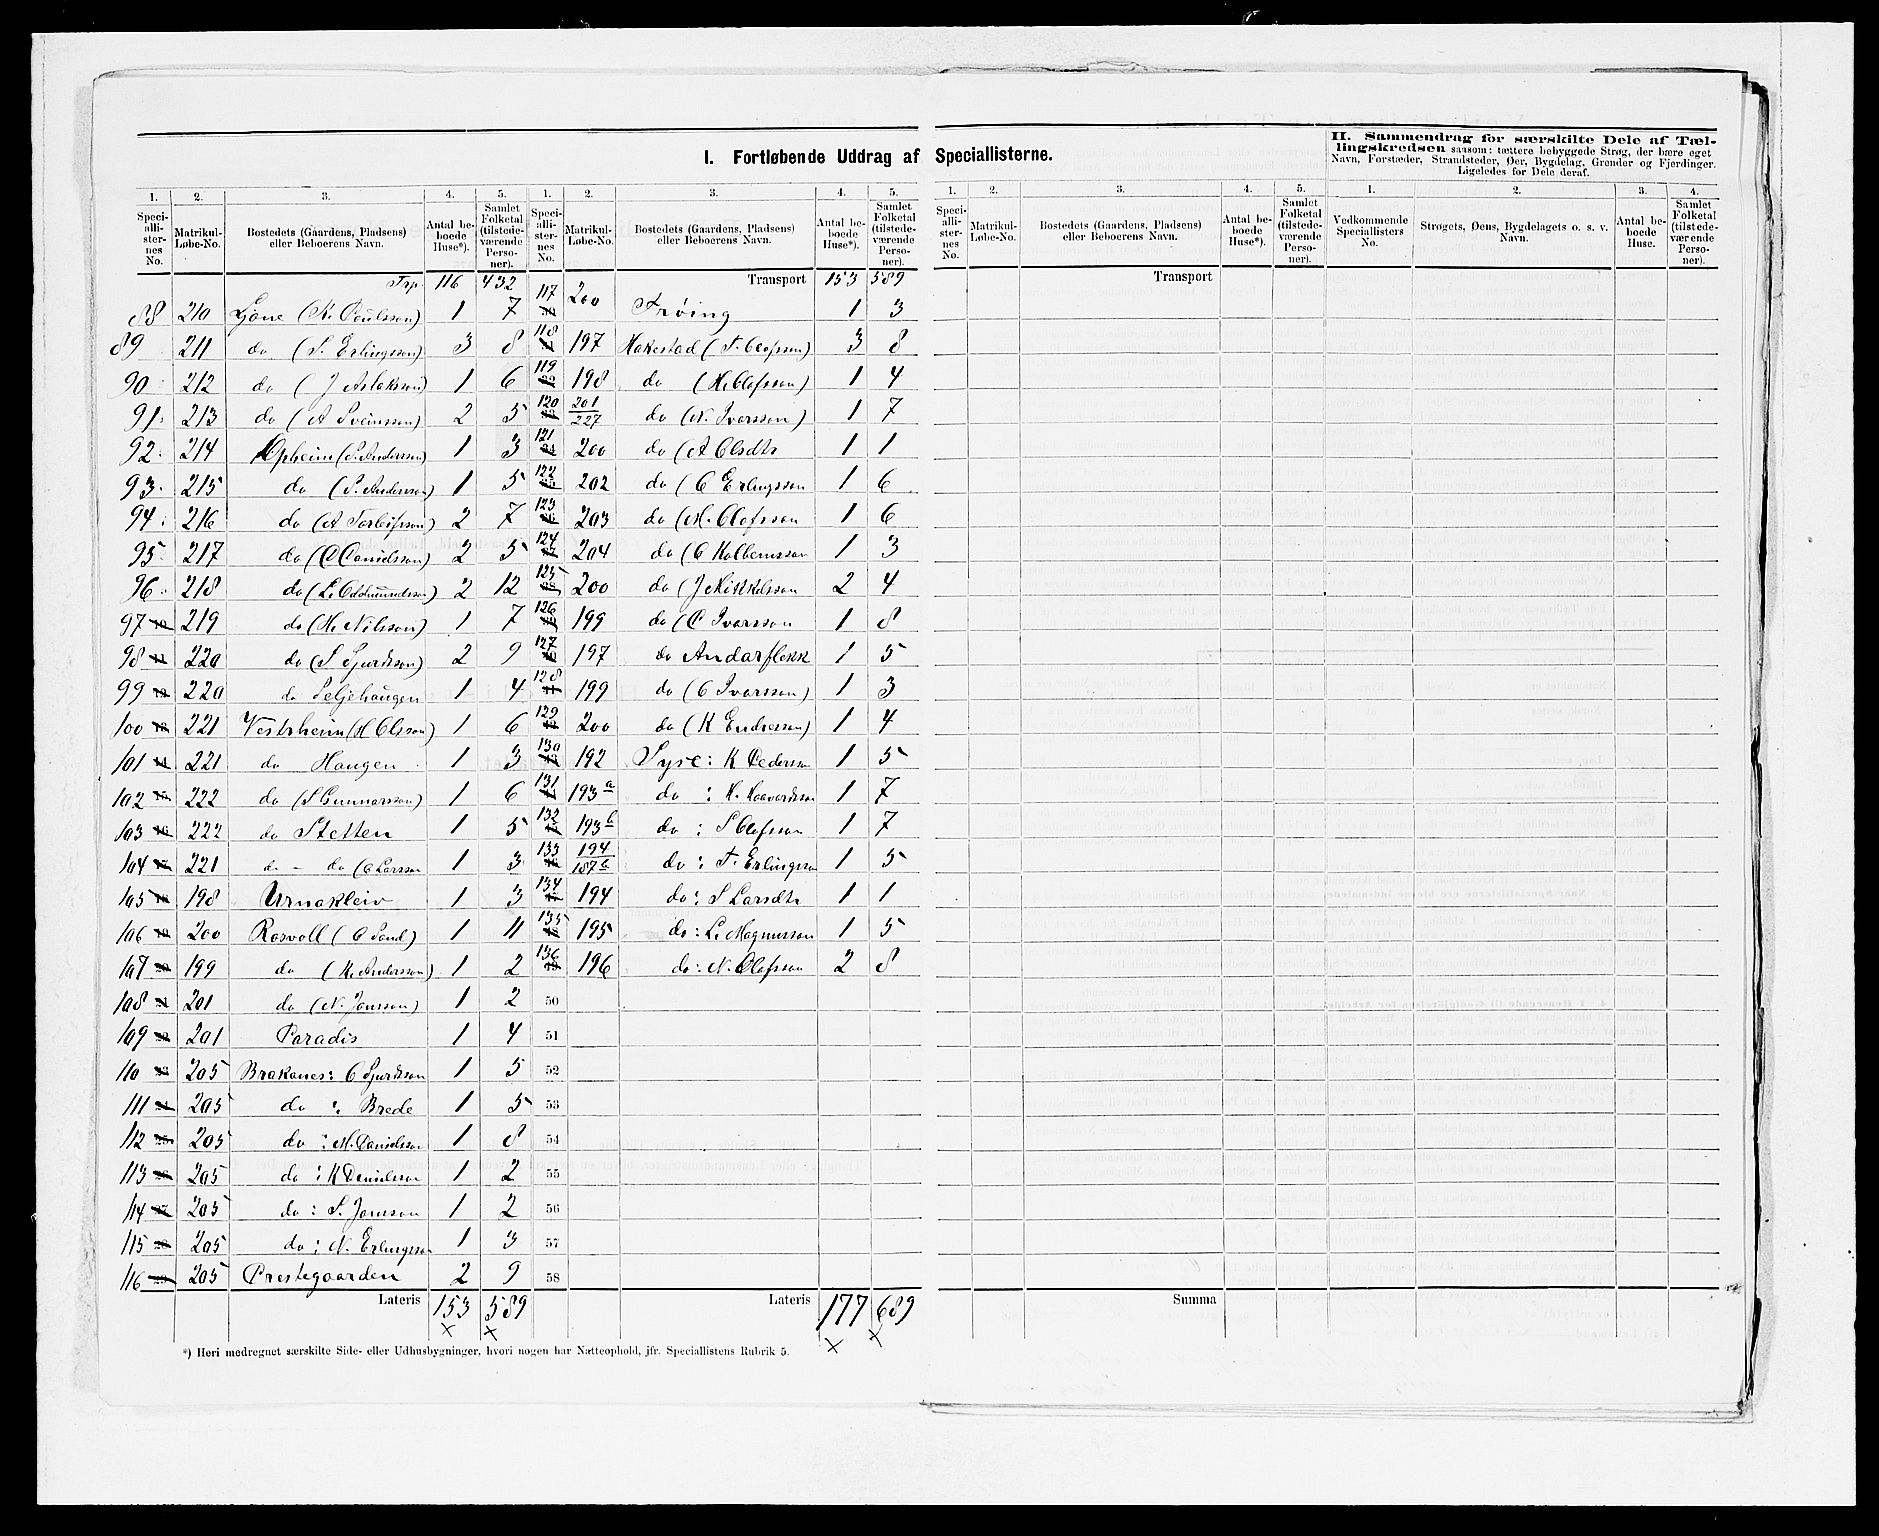 I. Fortløbende Uddrag af Speciallisterne.
II. Sammendrag for særskilte Dele af Tællingskredsen saasom: tættere bebyggede Strøg, der bære eget
Navn, Forstæder, Strandsteder, Øer, Bygdelag, Grender og Fjerdinger.
Ligeledes for Dele deraf.
1. 2. 3. 4. 5. 1. 2. 3. 4. 5. 1. 2. 3. 4. 5. 1. 2. 3. 4.
Speciallisternes No. Matrikul-Løbe-No. Bostedets (Gaardens, Pladsens) eller Beboerens Navn. Antal beboede Huse*). Samlet Folketal (tilstedeværende Personer).
Speciallisternes No. Matrikul-Løbe-No. Bostedets (Gaardens, Pladsens) eller Beboerens Navn. Antal beboede Huse*). Samlet Folketal (tilstedeværende Personer).
Speciallisternes No. Matrikul-Løbe-No. Bostedets (Gaardens, Pladsens) eller Beboerens Navn. Antal beboede Huse*). Samlet Folketal (tilstedeværende Personer).
Vedkommende Speciallisters No. Strøgets, Øens, Bygdelagets o. s. v. Navn. Antal beboede Huse. Samlet Folketal (tilstedeværende Personer).
Trp. 116 432
88 210 Ljone (K. Poulsson) 1 7
89 211 do (S. Erlingsson) 3 8
90 212 do (J Aslaksson) 1 6
91 213 do (A Sveinsson) 2 5
92 214 Opheim (S. Andersson) 1 3
93 215 do (S. Andersson) 1 5
94 216 do (A Torleifsson) 2 7
95 217 do (O Danielsson) 2 5
96 218 do (L. Oddmundsson) 2 12
97 219 do (H. Nilsson) 1 7
98 220 do (S Sjurdsson) 2 9
99 220 do Seljehaugen 1 4
100 221 Vestrheim (H Olsson) 1 6
101 221 do Haugen 1 3
102 222 do (S Gunnarsson) 1 6
103 222 do Stetten 1 5
104 221 do - do (O Larsson 1 3
105 198 Urnakleiv 1 3
106 200 Rosvoll (O Sand) 1 11
107 199 do (K. Andersson) 1 2
108 201 do (N. Jonsson) 1 2
109 201 Paradis 1 4
110 205 Brakanes: O Sjurdsson 1 5
111 205 do : Brede 1 5
112 205 do : M. Danielsson 1 8
113 205 do : K Danielsson 1 2
114 205 do : S. Jonsson 1 2
115 205 do : N. Erlingsson 1 3
116 205 Prestegaarden 2 9
Lateris 153 589
× ×
Transport 153 589
117 200 Trøing 1 3
118 197 Hakestad (T. Olofsson) 3 8
119 198 do (H. Olofsson) 1 4
120 201/227 do (N. Ivarsson) 1 7
121 200 do (A Olsdtr 1 1
122 202 do (O Erlingsson 1 6
123 203 do (M. Olofsson 1 6
124 204 do (O Kolbeinsson 1 3
125 200 do (J Mikkelsson 2 4
126 199 do (O Ivarsson 1 8
127 197 do Andarflekk 1 5
128 199 do (O Ivarsson) 1 3
129 200 do (K Endresson) 1 4
130 192 Syse: K Pedersson 1 5
131 193a do : H. Haavardsson 1 7
132 193b do : S Olofsson 1 7
133 194/187b do : T. Erlingsson 1 5
134 194 do : S Larsdtr 1 1
135 195 do : L. Magnusson 1 5
136 196 do : N. Olofsson 2 8
50
51
52
53
54
55
56
57
58
Lateris 177 689
× ×
Transport
Summa
*) Heri medregnet særskilte Side- eller Udhusbygninger, hvori nogen har Natteophold, jfr. Speciallistens Rubrik 5.